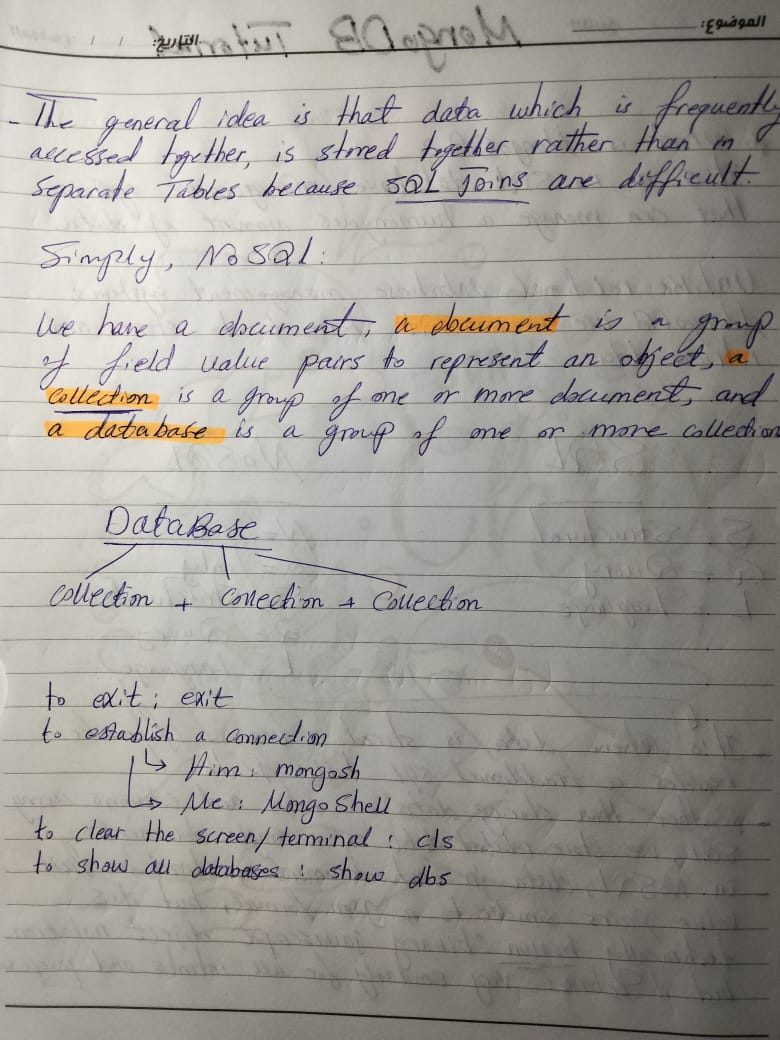 الموضوع:
التاريخ: / /
- The general idea is that data which is frequently
accessed together, is stored together rather than in
Separate Tables because SQL Joins are difficult.
Simply, NoSQL:
we have a document, a document is a group
of field value pairs to represent an object, a
collection is a group of one or more document, and
a database is a group of one or more collection
DataBase
collection + collection + Collection
to exit: exit
to establish a connection
↳ Him: mongosh
↳ Me: MongoShell
to clear the screen/terminal: cls
to show all databases: show dbs